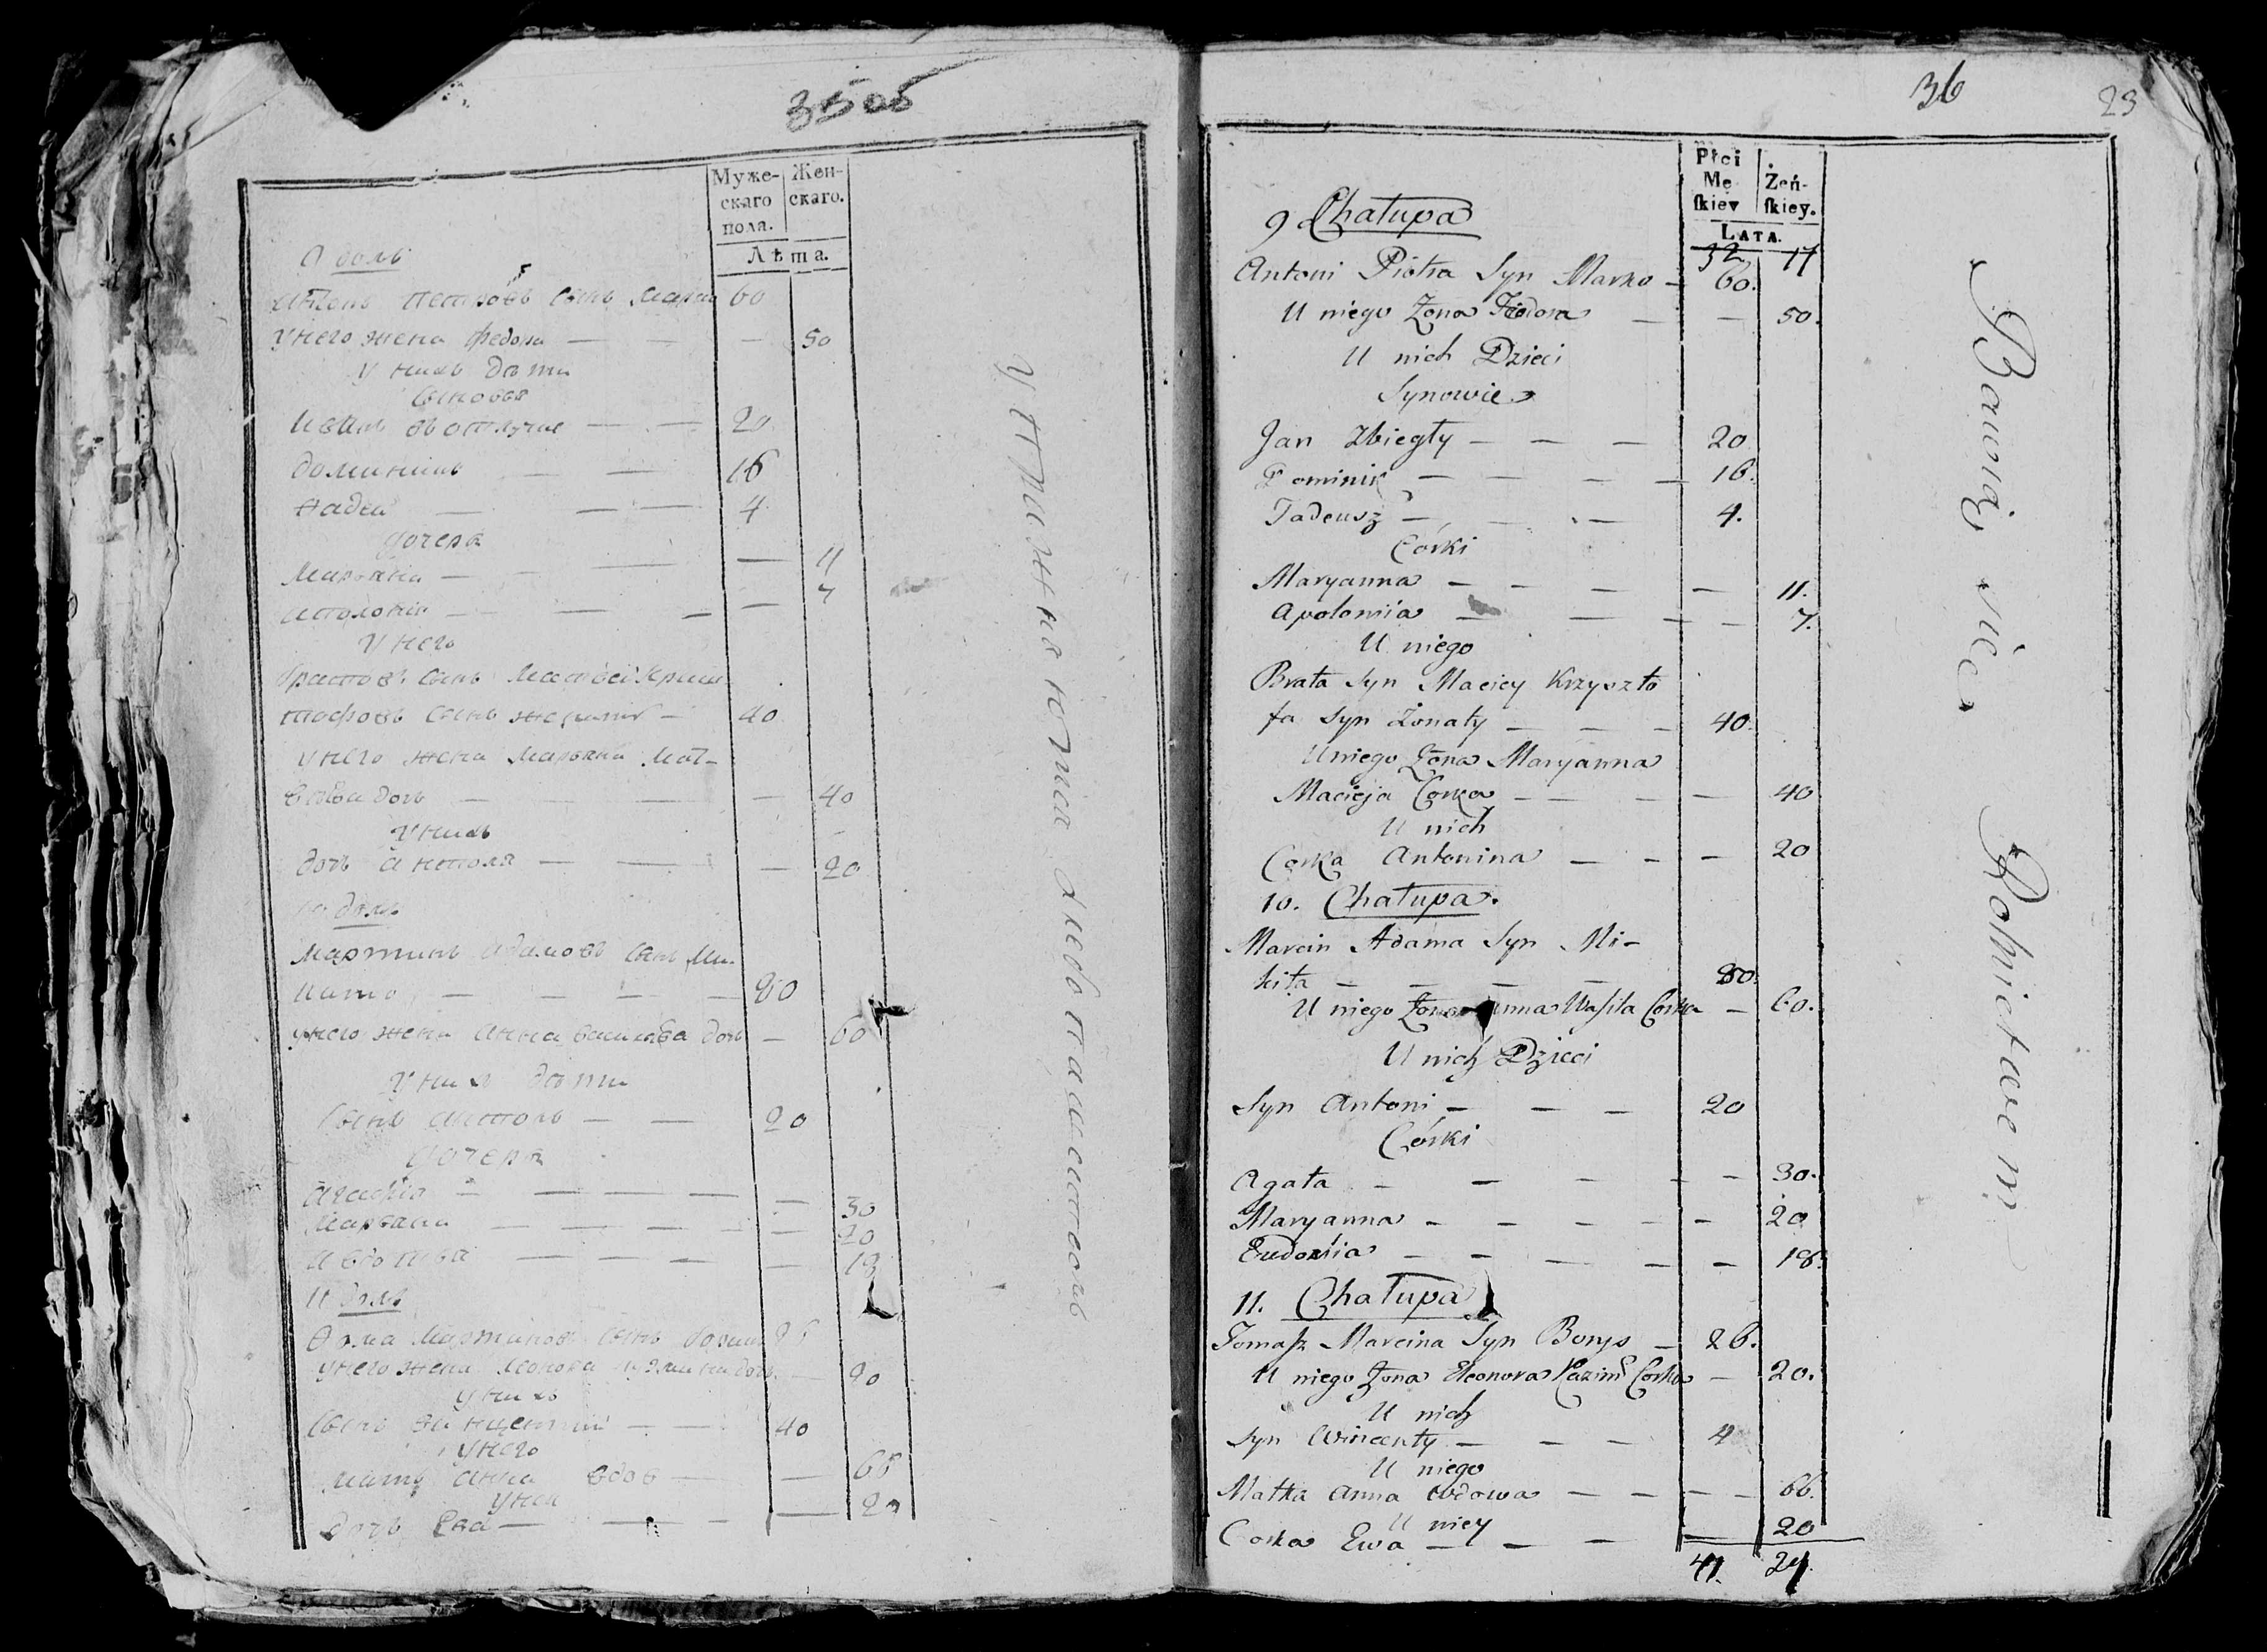 35 об
Муже-
скаго
пола.
Жен-
скаго.
Лѣта.
9 домъ
Антонъ Петровъ сынъ Марко 60
У него жена Федора — — — 50
У нихъ дѣти
Сыновья
Иванъ въ отлучке — — 20
Доминикъ — — 16
Фадей — — — 4
Дочери
Марьяна — — — — 11
Аполонія — — — — 7
У него
братовъ сынъ Матвей Криш
тофовъ сынъ женатъ — 40
у него жена Марьяна Мат-
веева дочь — — — 40
У нихъ
дочь Антоля — — — 20
10 домъ
Мартинъ Адамовъ сынъ Ми-
кито — — — — 80
у него жена Анна Василева дочь — 60
У нихъ дѣти
Сынъ Антонъ — — 20
Дочери
Агафія — — — — — 30
Марьяна — — — — — 20
Евдокия — — — — 18
11 домъ
Фома Мартиновъ сынъ Борис 26
у него жена дочь — 20
у нихъ
Сынъ Винцентий — — 4
у него
Мать Анна вдов — — 66
у ней
Дочь Ева — — — — 20
36
23
Płci
Mę
skiey
Żeń-
skiey.
LATA.
32 17
9 Chałupa
Antoni Piotra Syn Marko — 60.
U niego Żona Fiodora — — 50.
U nich Dzieci
Synowie
Jan Zbiegły — — — 20
Dominik — — — — 16.
Tadeusz — — . — 4.
Córki
Maryanna — — — — 11.
Apolonija — — — — 7.
U niego
Brata Syn Maciey Krzyszto
fa Syn Żonaty — — — 40.
U niego Żona Maryanna
Macieja Corka — — — — 40
U nich
Corka Antonina — — — 20
10. Chałupa.
Marcin Adama Syn Mi-
kita — — — — 80.
U niego Żona Anna Wasila Corka — 60.
U nich Dzieci
Syn Antoni — — — 20
Córki
Agata — — — — — 30.
Maryanna — — — — — 20
Eudoxia — — — — — 18.
11. Chałupa
Tomasz Marcina Syn Borys — 26.
U niego Żona Eleonora Kazim Corka — 20.
U nich
Syn Wincenty — — — 4
U niego
Matka Anna wdowa — — — — 66.
U niey
Corka Ewa — — — — 20
41. 24.